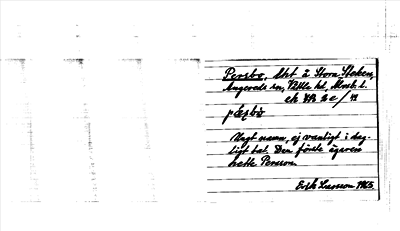 Persbo, lht å Stora Steken,
Angereds sn, Vättle hd, Älvsb. l.
ek VR 2 c / 11
pæʂbò
Ungt namn, ej vanligt i dag-
ligt tal. Den förste ägaren
hette Persson.
Erik Larsson 1965